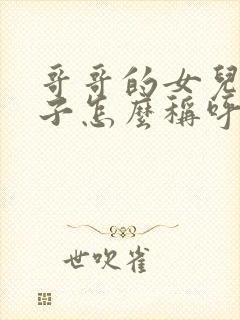 哥哥的女兒
子怎麼稱呼
世吹雀